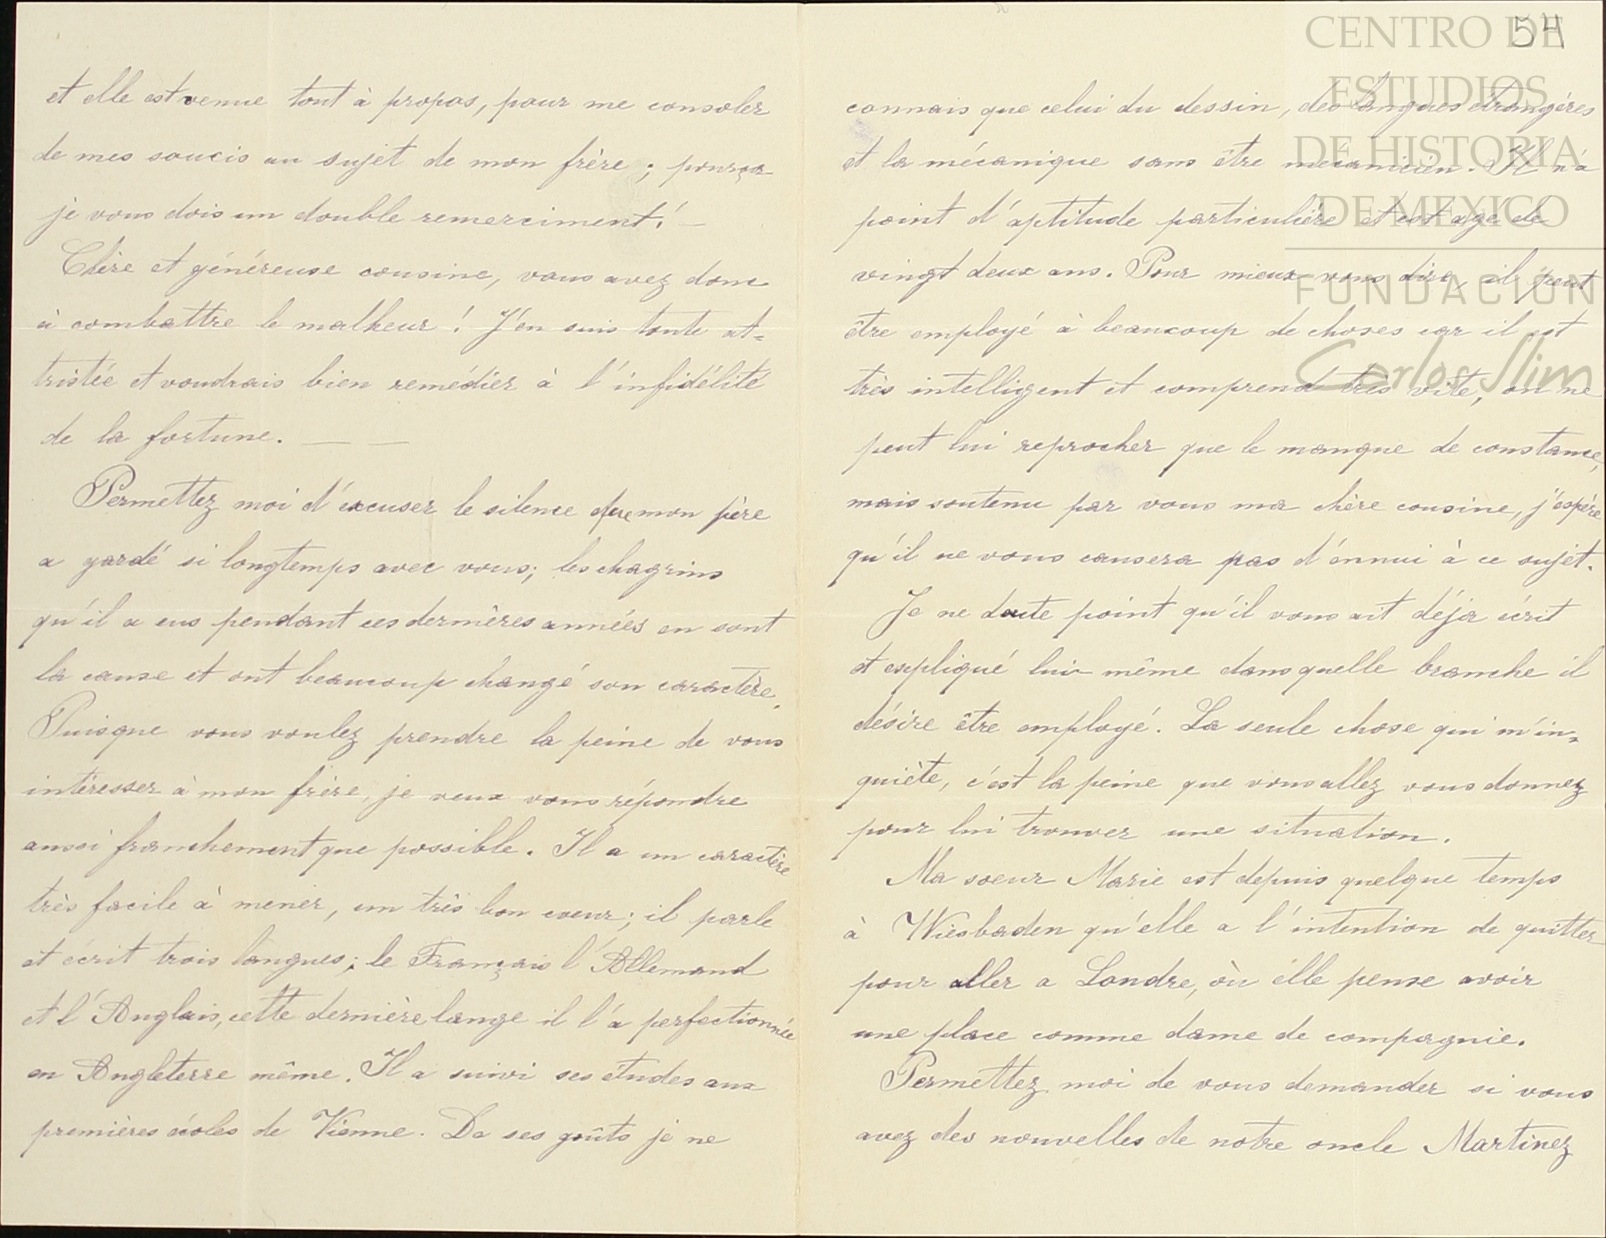 et elle est venue tout à propos, pour me consoler
de mes soucis au sujet de mon frère ; pour ça
je vous dois un double remerciment ! —
Chère et généreuse cousine, vous avez donc
à combattre le malheur ! J'en suis toute at=
tristée et voudrais bien remédier à l'infidélité
de la fortune. — —
Permettez moi d'éxcuser le silence que mon père
a gardé si longtemps avec vous; les chagrins
qu'il a eus pendant ces dernières années en sont
la cause et ont beaucoup changé son caractère.
Puisque vous voulez prendre la peine de vous
intéresser à mon frère, je veux vous répondre
aussi franchement que possible. Il a un caractère
très facile à mener, un très bon coeur; il parle
et écrit trois langues; le Français l'Allemand
et l'Anglais, cette dernière lange il l'a perfectionnée
en Angleterre même. Il a suivi ses etudes aux
premières écoles de Vienne. De ses goûts je ne
54
connais que celui du dessin, des langues étrangères
et la mécanique sans être mécanicien. Il n'a
point d'aptitude particulière et est agé de
vingt deux ans. Pour mieux vous dire, il peut
être employé à beaucoup de choses car il est
très intelligent et comprend très vite, on ne
peut lui reprocher que le manque de constance,
mais soutenu par vous ma chère cousine, j'espère
qu'il ne vous causera pas d'énnui à ce sujet.
Je ne doute point qu'il vous ait déja écrit
et expliqué lui même dans quelle branche il
désire être employé. La seule chose qui m'in=
quiète, c'est la peine que vous allez vous donnez
pour lui trouver une situation.
Ma soeur Marie est depuis quelque temps
à Wiesbaden qu'elle a l'intention de quitter
pour aller a Londre, où élle pense avoir
une place comme dame de compagnie.
Permettez moi de vous demander si vous
avez des nouvelles de notre oncle Martinez
CENTRO DE
ESTUDIOS
DE HISTORIA
DE MEXICO
FUNDACIÓN
Carlos Slim